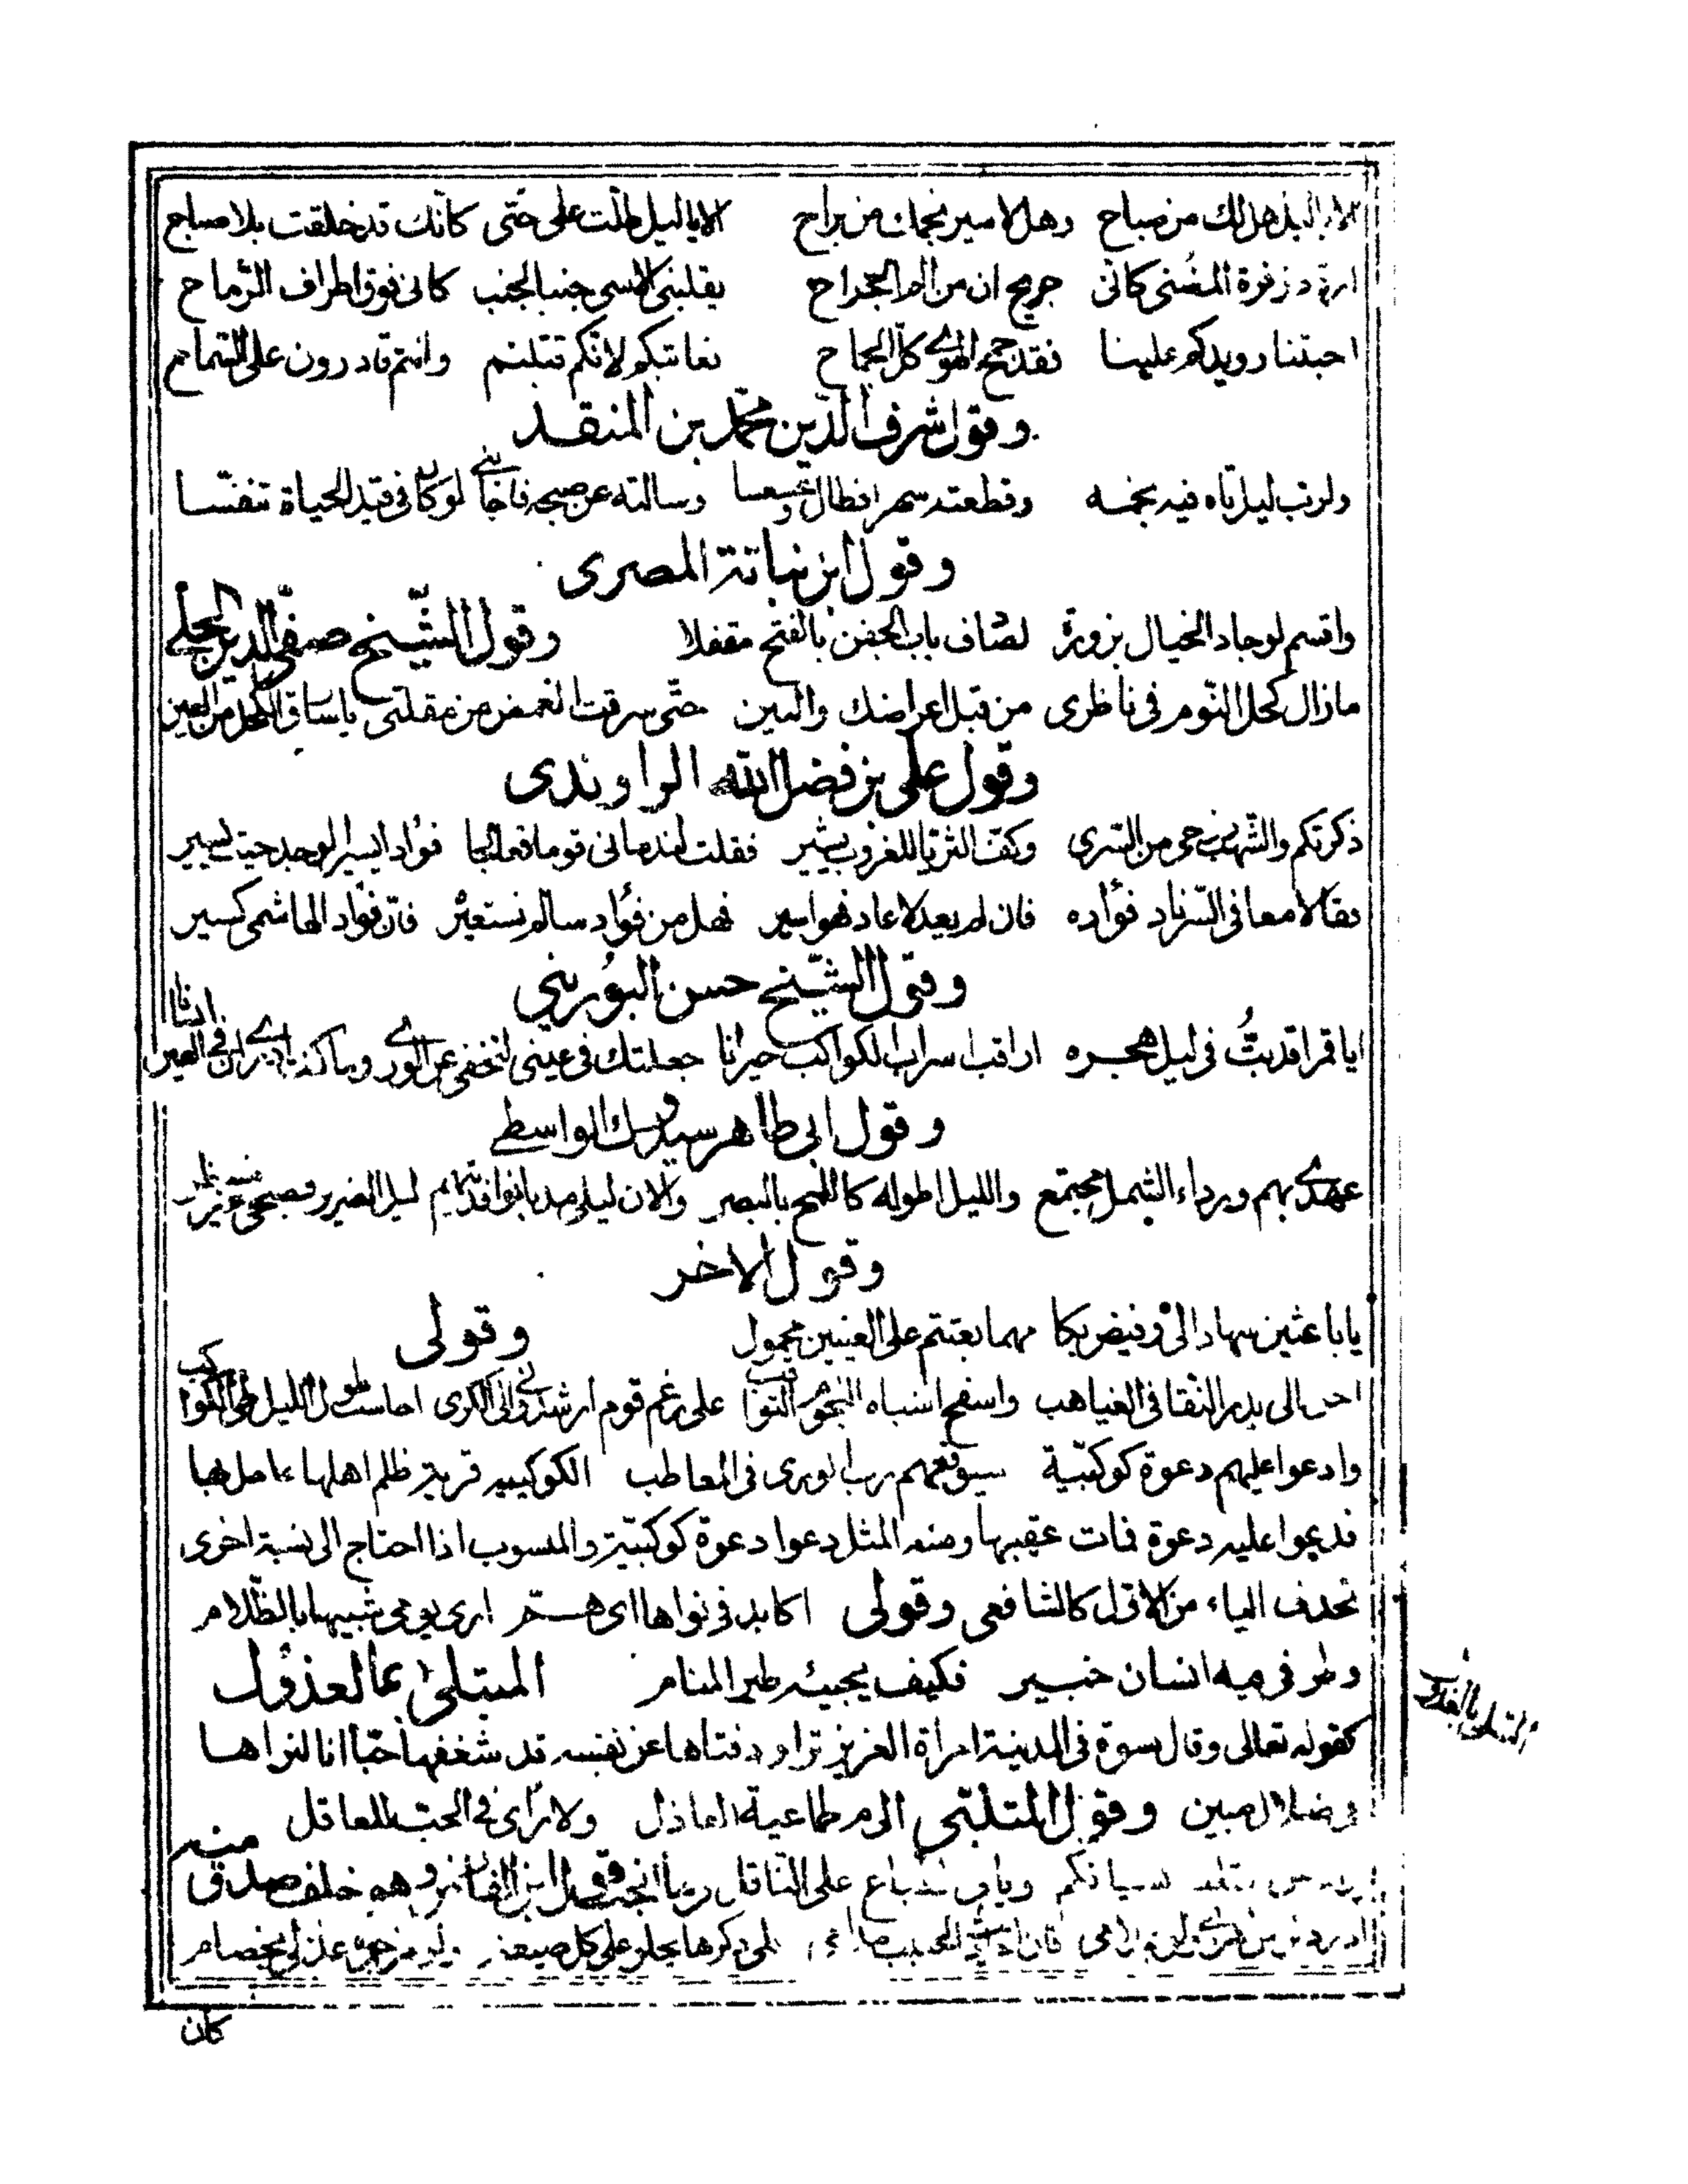 الا يا ليل هل لك من صباح وهل لاسير نجمك من براح الا يا ليل طلت على حتى كانك قد خلقت بلا صباح
اردد زفرة المضنى كانى جريح ان من الم الجراح يقلبنى الاسى جنبا لجنب كانى فوق اطراف الرماح
احبتنا رويدكم علينا فقد جمح الهوى كل الجماح نعاتبكم لانكم قتلتم وانتم قادرون على السماح
وقول شرف الدين محمد بن المنقذ
ولرب ليل تاه فيه نجمه وقطعته سهرا فطال وعسعسا وسالته عن صبحه فاجابنى لو كان فى قيد الحياة تنفسا
وقول ابن نباتة المصرى
واقسم لو جاد الخيال بزورة لصادف باب الجفن بالفتح مقفلا وقول الشيخ صفى الدين الحلى
ما زال كحل النوم فى ناظرى من قبل اعراضك والبين حتى سرقت الغمض من مقلتى يا سارق الكحل من العين
وقول على بن فضل الله الراوندى
ذكرتكم والشهب حيرى من السرى وكف الثريا للغروب يشير فقلت لندمانى قوما فعالجا فؤاد اسير الوجد حيث يسير
فقالا معا فى السر ناد فؤاده فان لم يعد لا عاد فهو اسير فهل من فؤاد سالم نستعيره فان فؤاد الهاشمى كسير
وقول الشيخ حسن البورينى
ايا قمرا قد بت فى ليل هجره اراقب اسراب الكواكب حيرانا جعلتك فى عينى لتخفى عن الورى وما كنت ادرى ان فى العين انسانا
وقول ابى طاهر سيدوك الواسطى
عهدى بهم ورداء الشمل مجتمع والليل اطوله كاللمح بالبصر والان ليلى مذ بانوا فديتهم ليل الضرير فصبحى غير منتظر
وقول الاخر
يا باعثين سهادا لى وفيض بكا مهما بعثتم على العينين محمول وقولى
احن الى بدر النقا فى الغياهب واسفح اشباه النجوم الثواقب على رغم قوم ارشدونى الى الكرى احاسب طول الليل شهب الكواكب
وادعوا عليهم دعوة كوكبية سيوقعهم رب الورى فى المعاطب الكوكبيه قرية ظلم اهلها عامل بها
فدعوا عليه دعوة فمات عقيبها ومنه المثل دعوا دعوة كوكبية والمنسوب اذا احتاج الى نسبة اخرى
تحذف الياء من الاول كالشافعى وقولى اكابد فى نواها اى هم ارى يومى شبيها بالظلام
وطرفى فيه انسان خبير فكيف يجيئه طير المنام المبتلى بالعذول
كقوله تعالى وقال نسوة فى المدينة امراة العزيز تراود فتاها عن نفسه قد شغفها حبا انا لنراها
فى ضلال مبين وقول المتنبى الى م طماعية العاذل ولا راى فى الحب للعاقل
يراد من القلب نسيانكم ويابى الطباع على الناقل وقول ابن الفارض وهو خلف صدق منه
ادر ذكر من اهوى ولو بملامى فان احاديث الحبيب مدامى فلى ذكرها يحلو على كل صيغة ولو مزجوه عذلى بخصام
المبتلى بالعذول
كان